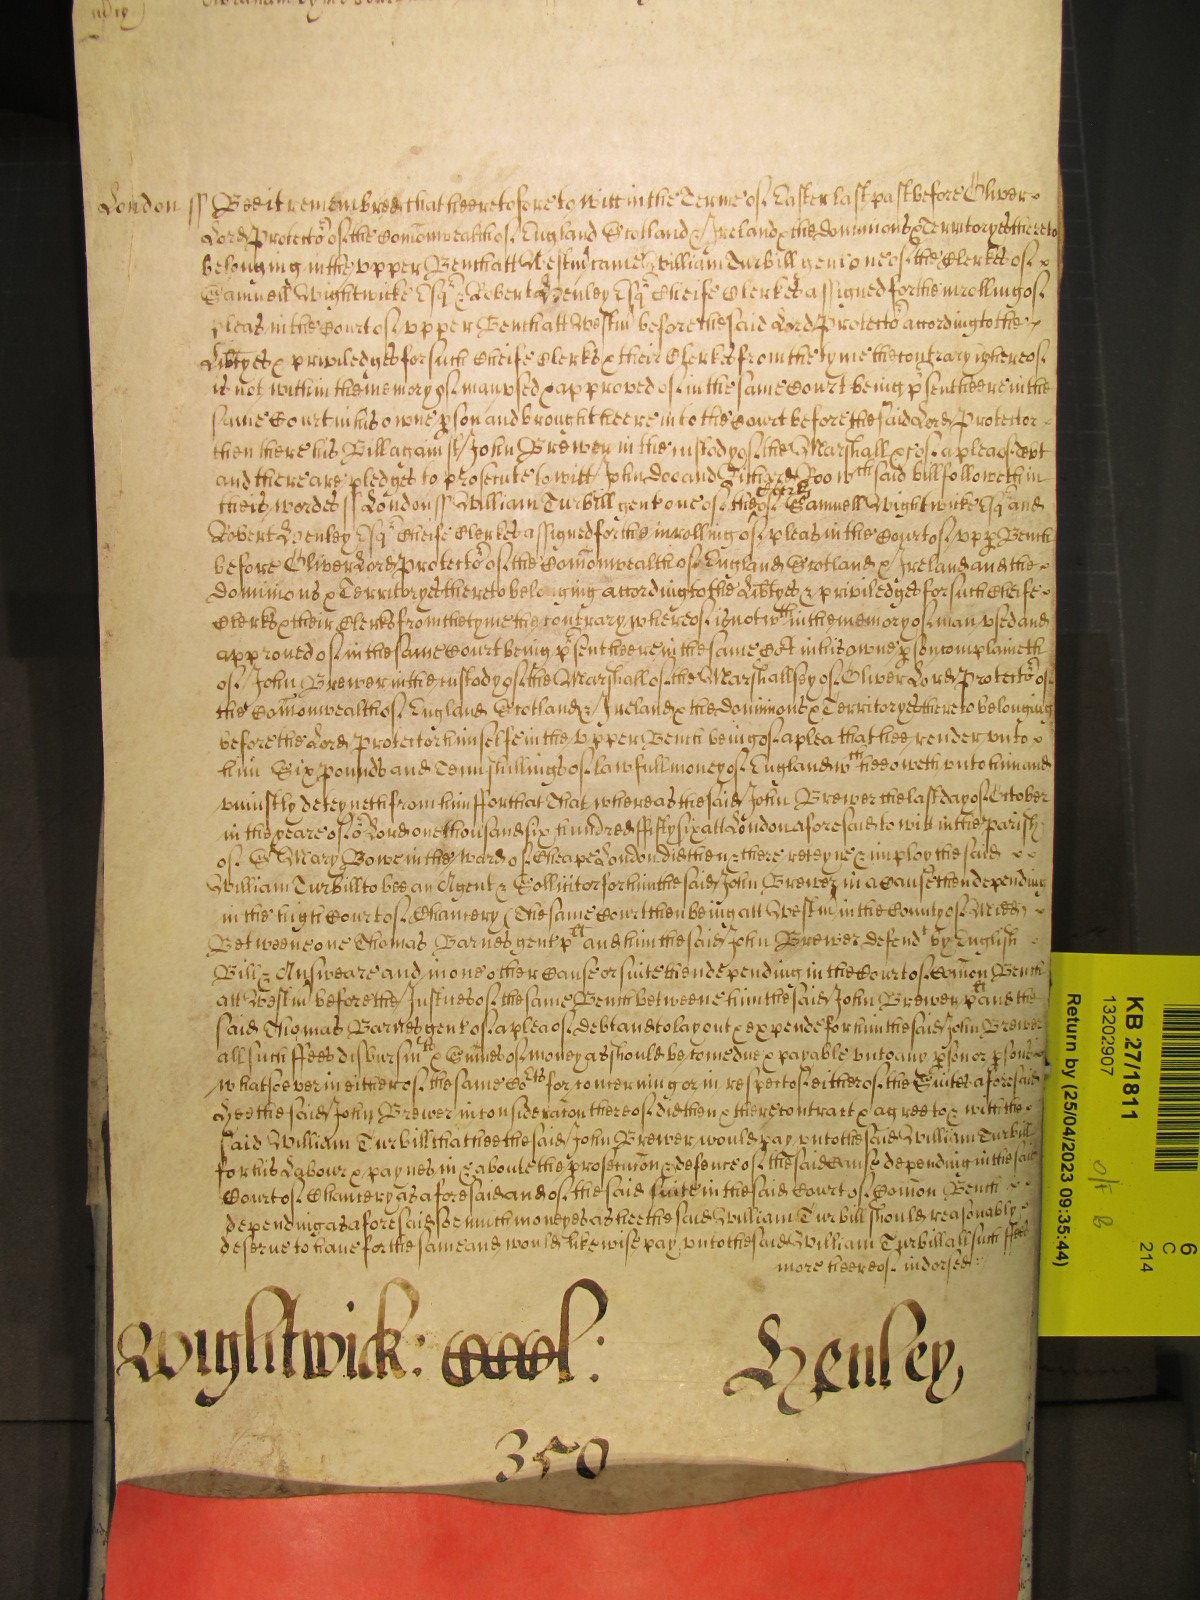 London ss Bee it remembred that heeretofore to witt in the Terme of Easter last past before Oliver
Lord Protector of the Comonwealth of England Scotland & Ireland & the dominions & Territoryes thereto
belonging in the upper Bench att Westm came William Turbill gent one of the Clerkes of
Samuell Wightwicke Esqr & Robert Henley Esqr Cheife Clerkes assigned for the inrolling of
pleas in the Court of upper Bench att Westm before the said Lord Protector according to the
Libtyes & priviledges for such Cheife Clerks & their Clerkes from the tyme the contrary whereof
is not within the memory of man used & approved of in the same Court being psent heere in the
same Court in his owne pson and brought heere into the Court before the said Lord Protector
then there his Bill against John Brewer in the custody of the Marshall &c of a plea of debt
and there are pledges to prosecute to witt John Doo and Richard Roo wch said bill followeth in
theis wordes ss London ss William Turbill gent one of the Clerks of Samuell Wightwicke Esqr and
Robert Henley Esqr Cheife Clerkes assigned for the inrolling of pleas in the Court of upp Bench
before Oliver Lord Protector of the Comonwealth of England Scotland & Ireland and the
dominions & Territoryes thereto belonging according to the Libtyes & priviledges for such Cheife
Clerks & their Clerks from the tyme the contrary whereof is not wthin the memory of man used and
approued of in the same Court being psent heere in the same Crt in his owne pson complaineth
of John Brewer in the custody of the Marshall of the Marshallsey of Oliver Lord Protector of
the Comonwealth of England Scotland & Ireland & the dominions & Territoryes thereto belonging
before the Lord Protector himselfe in the upper Bench being of a plea that hee render unto
him Six pounds and Tenn shillings of lawfull money of England wch hee oweth unto him and
uniustly deteyneth from him ffor that That whereas the said John Brewer the last day of October
in the yeare of or Lord one thousand six hundred ffifty six att London aforesaid to witt in the parish
of St Mary Bowe in the ward of Cheape London did then & there reteyne & imploy the said
William Turbill to bee an Agent & Sollicitor for him the said John Brewer in a Cause then depending
in the high Court of Chancery (the same Court then being att Westm in the County of Midd)
Betweene one Thomas Barnes gent plt and him the said John Brewer defendt by English
Bill & Answeare and in one other Cause or suite then depending in the Court of Comon Bench
att Westm before the Justices of the same Bench betweene him the said John Brewer plt and the
said Thomas Barnes gent of a plea of debt and to lay out & expende for him the said John Brewer
all such ffees disbursmts & Sumes of money as should become due & payable unto any pson or psons
whatsoever in either of the same Corts for concerning or in respect of either of the Suites aforesaid
Hee the said John Brewer in consideracon thereof did then & there contract & agree to & with the
said William Turbill that hee the said John Brewer would pay unto the said William Turbill
for his Labour & paynes in & aboute the prosecucon & defence of the said Cause depending in the said
Court of Chancery as aforesaid and of the said suite in the said Court of Comon Bench
depending as aforesaid soe much moneyes as hee the said William Turbill should reasonably
deserue to haue for the same and would likewise pay unto the said William Turbill all such ffees
more thereof indorsed
Wightwick: Henley
350
KB 27/1811
13202907
Return by (25/04/2023 09:35:44)
6
C
214